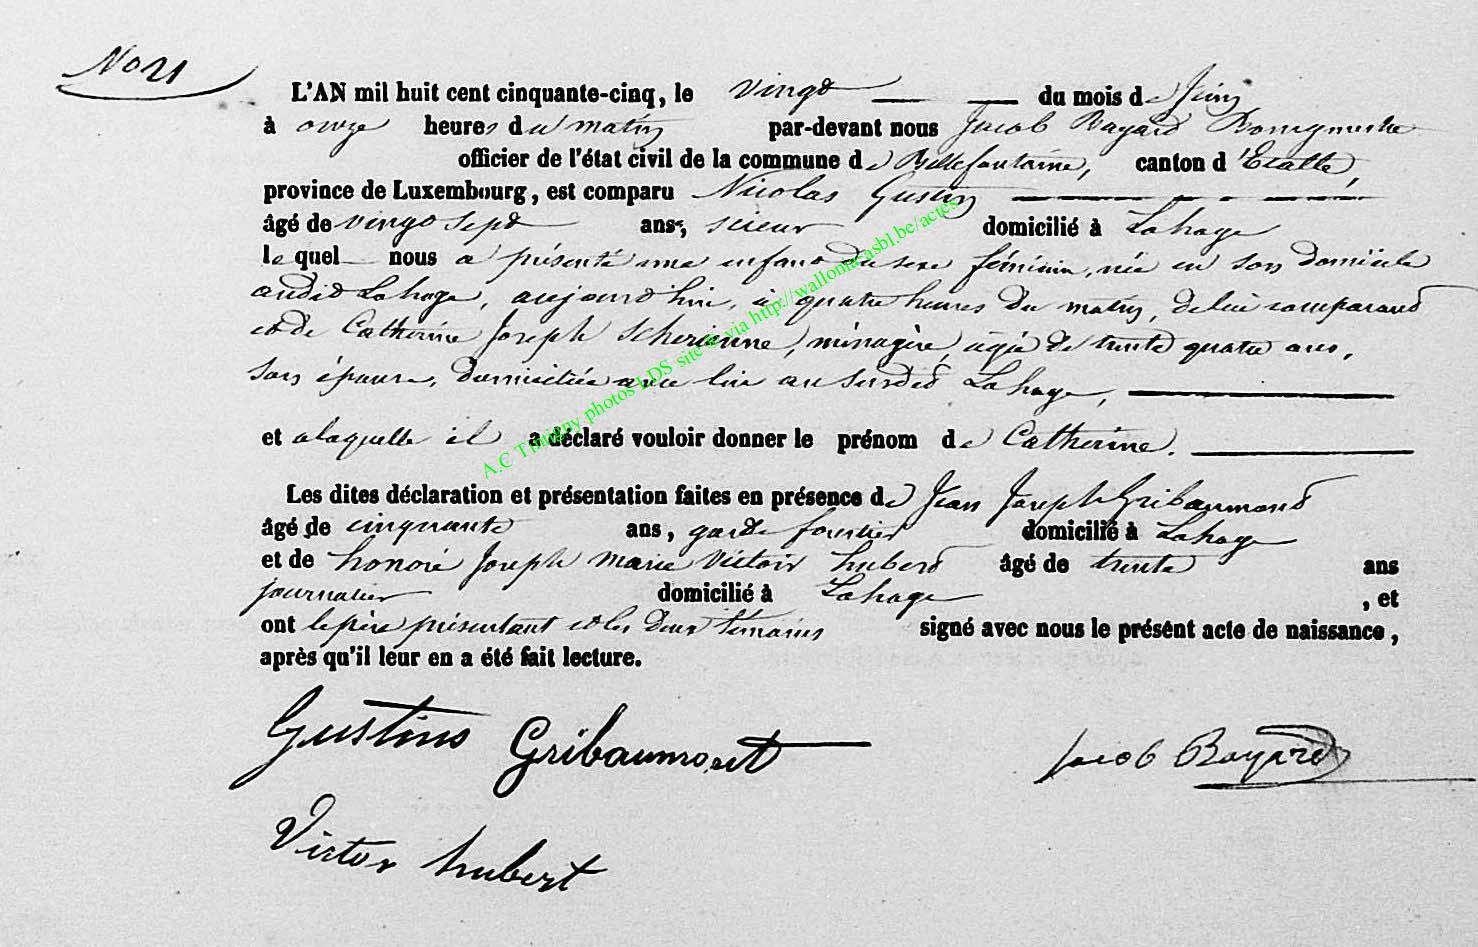 No 21
L'AN mil huit cent cinquante-cinq, le vingt du mois de Juin
à onze heures du matin par-devant nous Jacob Bayard Bourgmestre
officier de l'état civil de la commune de Bellefontaine, canton d'Etalle,
province de Luxembourg, est comparu Nicolas Gustin
âgé de vingt sept ans, scieur domicilié à Lahage
lequel nous a présenté une enfant du sexe féminin, née en son domicile
audit Lahage, aujourd'hui, à quatre heures du matin, de lui comparant
et de Catherine Joseph , ménagère, agée de trente quatre ans,
son épouse, domiciliée avec lui au susdit Lahage,
et à laquelle il a déclaré vouloir donner le prénom de Catherine.
Les dites déclaration et présentation faites en présence de Jean Joseph Gribaumont
âgé de cinquante ans, garde forestier domicilié à Lahage
et de honoré Joseph marie Victoir hubert âgé de trente ans
journalier domicilié à Lahage , et
ont le père présentant et les deux témoins signé avec nous le présent acte de naissance,
après qu'il leur en a été fait lecture.
Gustin Gribaumont Jacob Bayard
Victor hubert
A.C Tintigny photos LDS site © via http://walloniacasbl.be/actes